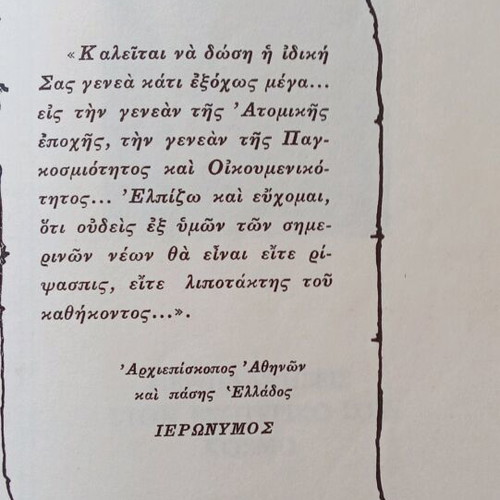 «Καλεῖται νὰ δώση ἡ ἰδική
Σας γενεὰ κάτι ἐξόχως μέγα...
εἰς τὴν γενεὰν τῆς Ἀτομικῆς
ἐποχῆς, τὴν γενεὰν τῆς Παγ-
κοσμιότητος καὶ Οἰκουμενικό-
τητος... Ἐλπίζω καὶ εὔχομαι,
ὅτι οὐδεὶς ἐξ ὑμῶν τῶν σημε-
ρινῶν νέων θὰ εἶναι εἴτε ρί-
ψασπις, εἴτε λιποτάκτης τοῦ
καθήκοντος...».
Ἀρχιεπίσκοπος Ἀθηνῶν
καὶ πάσης Ἑλλάδος
ΙΕΡΩΝΥΜΟΣ